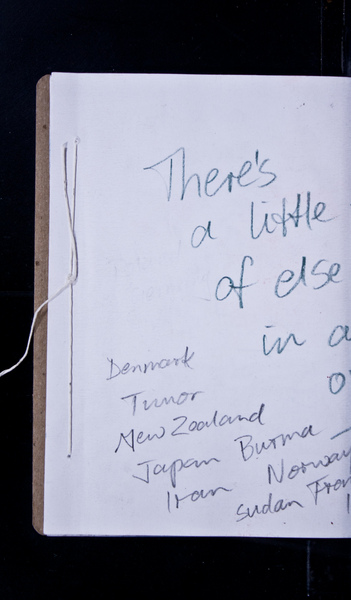 There's
a little
of else
in a
o
Denmark
Timor
New Zealand
Japan Burma –
Iran Norway
Sudan Fran